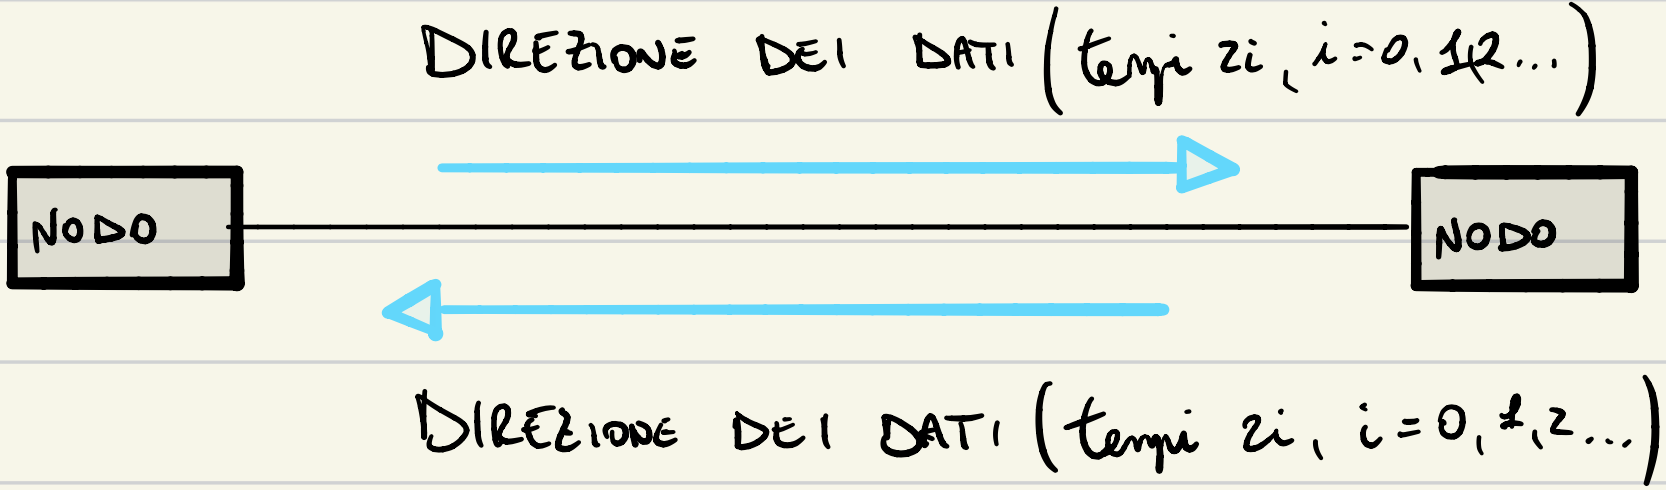 DIREZIONE DEI DATI (tempi 2i, i=0, 1,2...)
NODO
NODO
DIREZIONE DEI DATI (tempi 2i, i=0, 1, 2...)